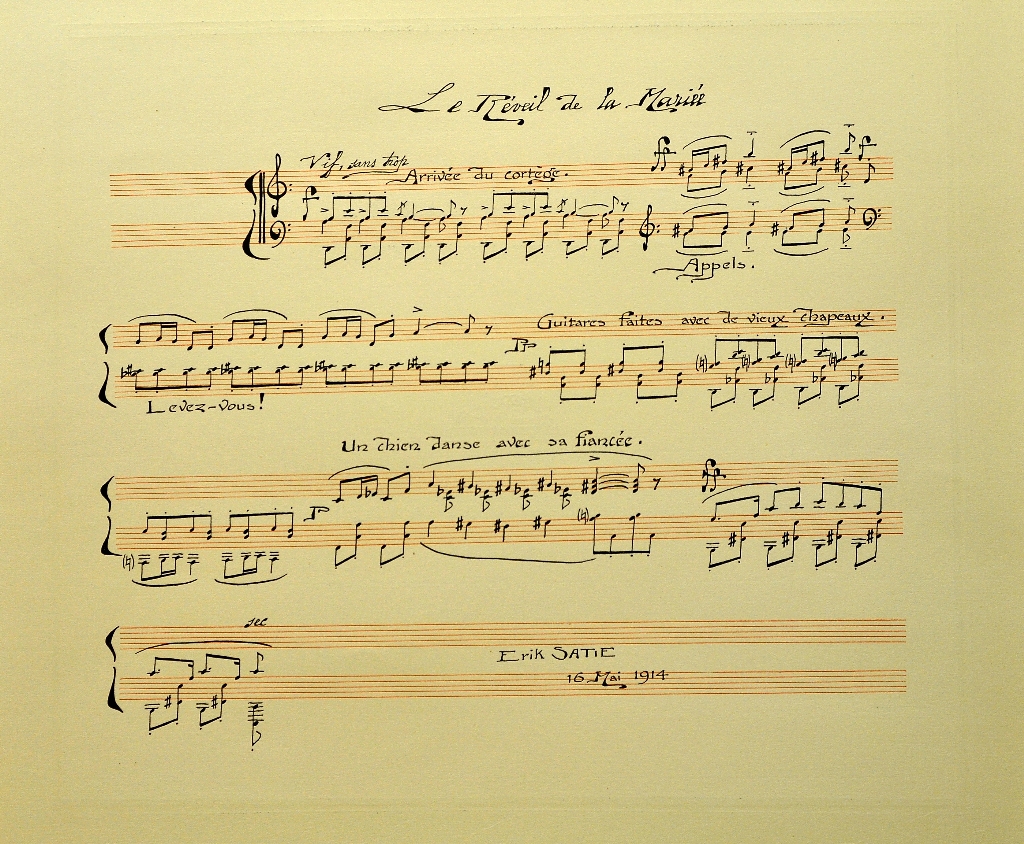 Le Réveil de la Mariée
Vif, sans trop
Arrivée du cortège.
Appels.
Guitares faites avec de vieux chapeaux.
Levez-vous!
Un chien danse avec sa fiancée.
sec
Erik SATIE
16 Mai 1914